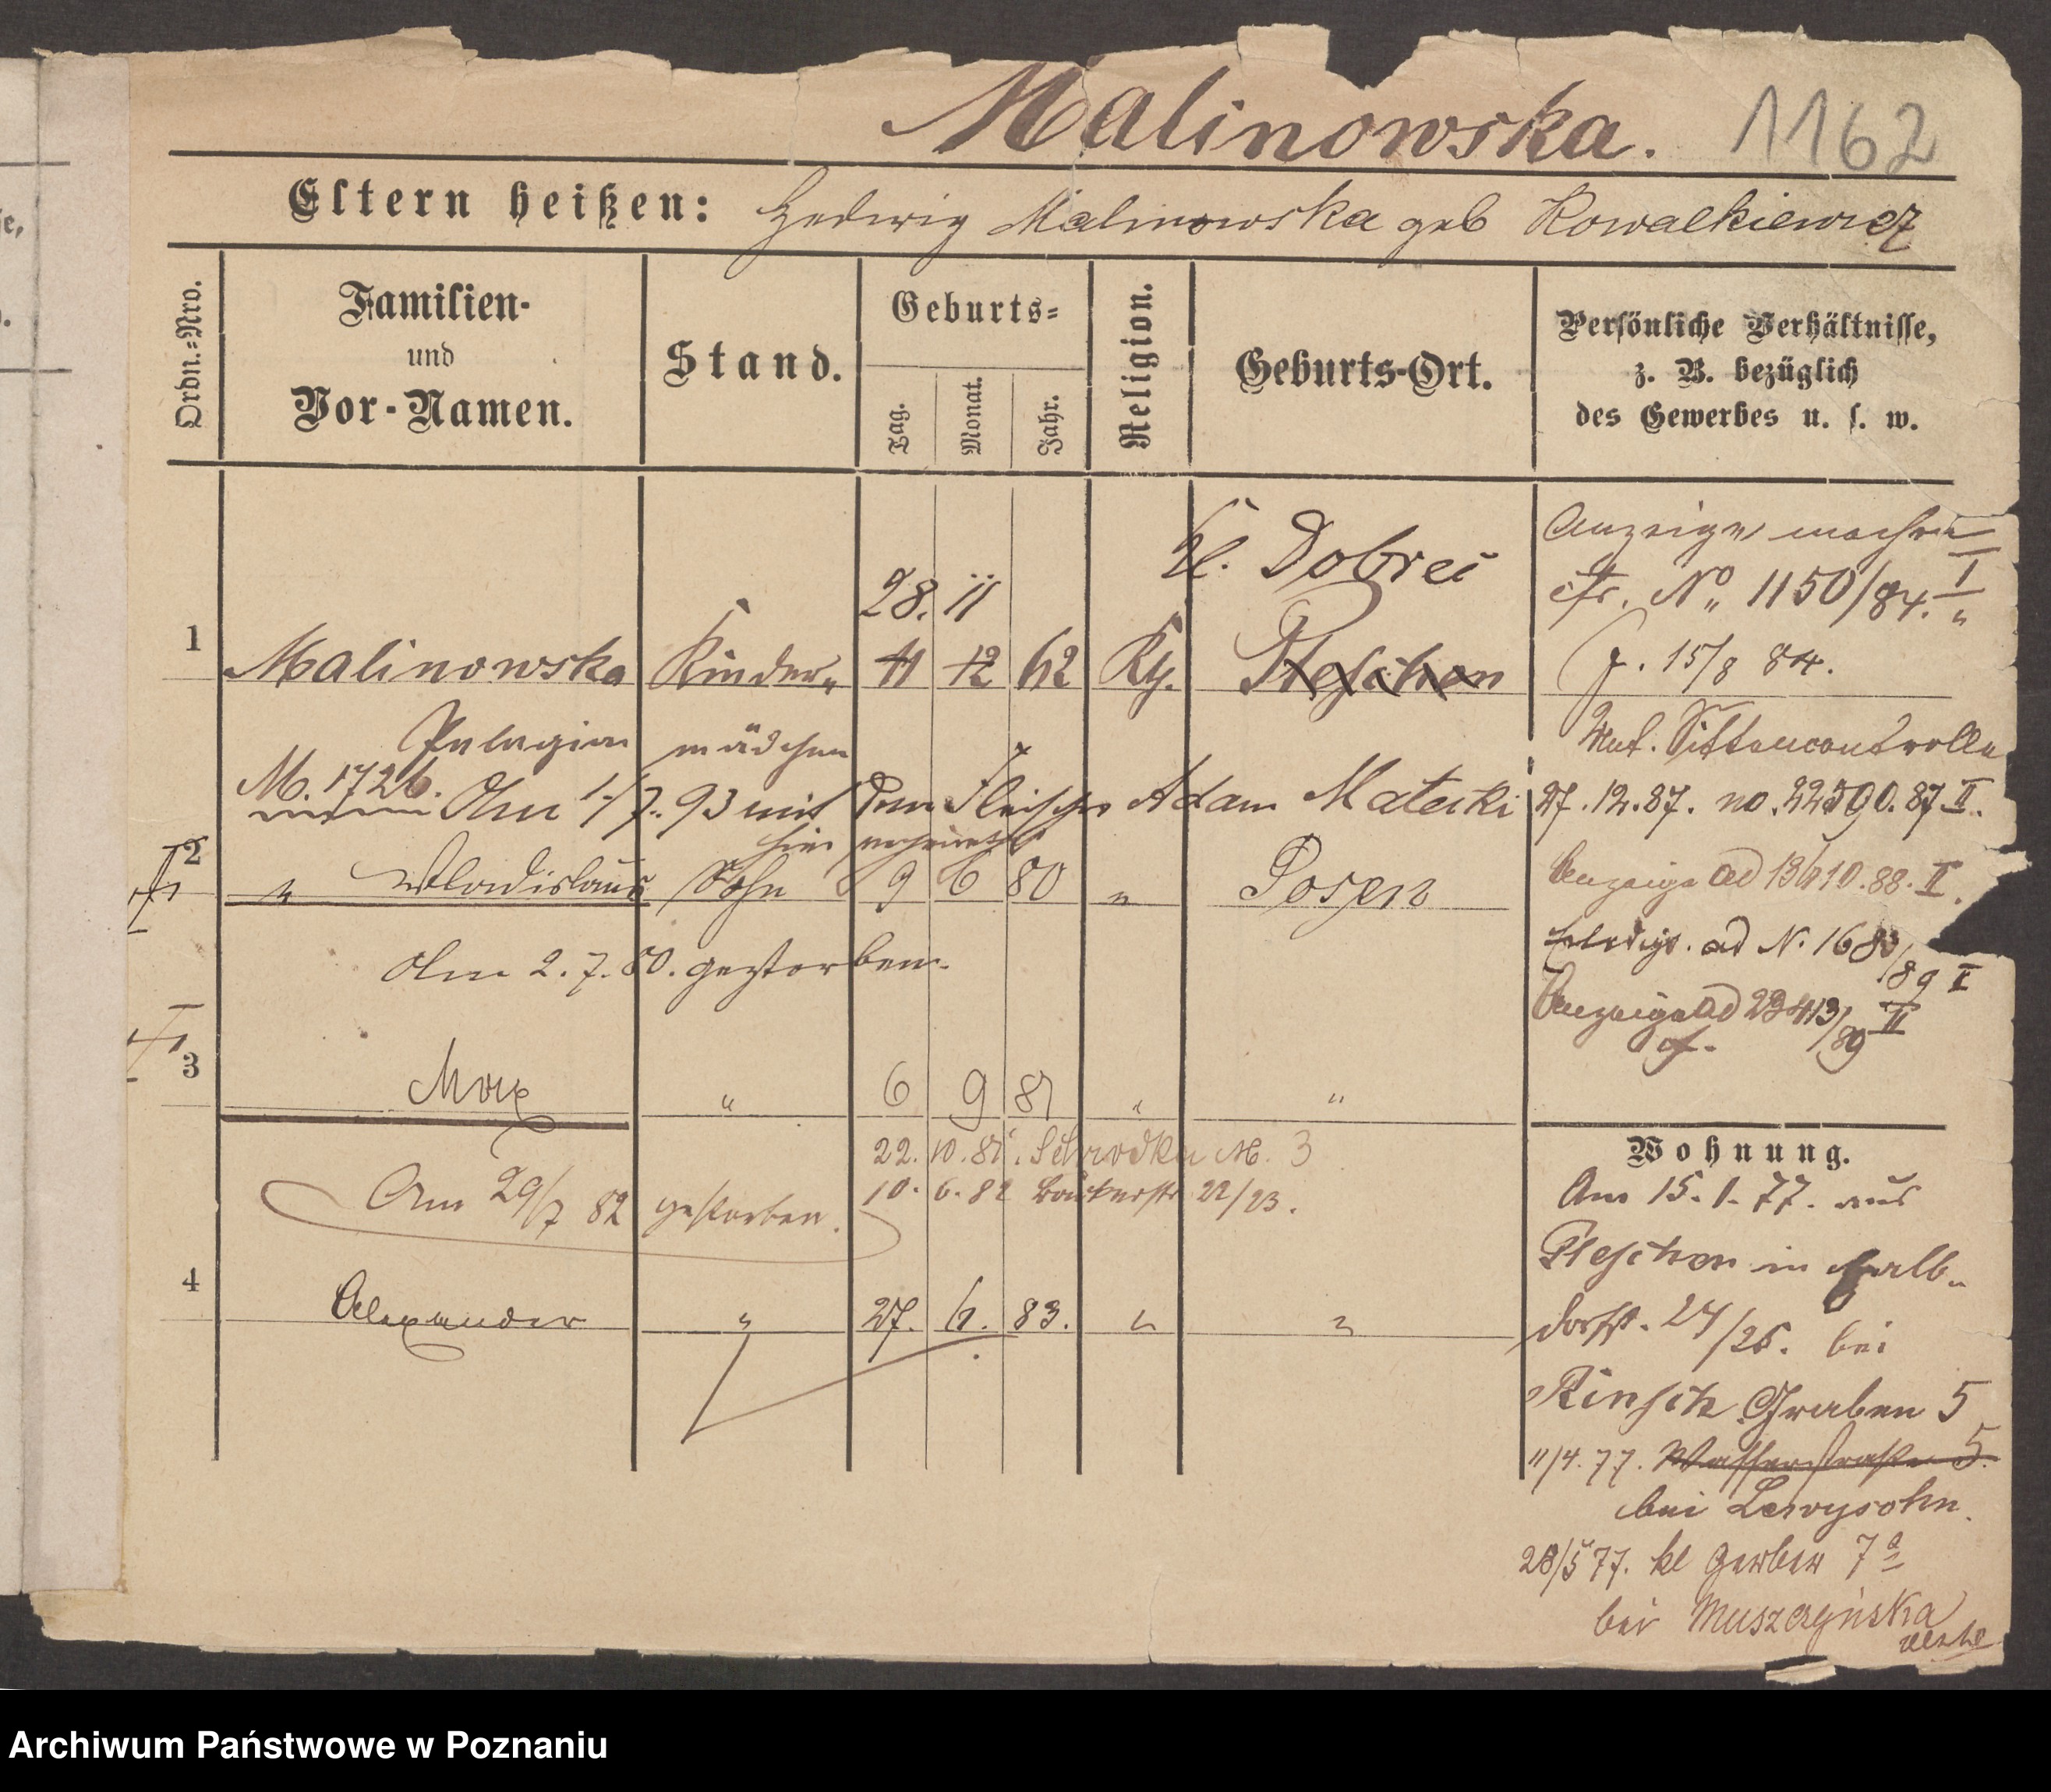 Malinowska. 1162
Eltern heißen: Hedwig Malinowska geb Kowalkiewicz
Ordn.-Nro.
Familien-
und
Vor-Namen.
Stand.
Geburts-
Tag.
Monat.
Jahr.
Religion.
Geburts-Ort.
Persönliche Verhältnisse,
z. B. bezüglich
des Gewerbes u. s. w.
Kl. Dobrei
28. 11
1 Malinowska Kinder- 11 12 62 Kth. Pleschen
Pelagia mädchen
M. 1726. Am 1/7. 93 mit dem Fleischer Adam Matecki
hier verheirathet
2 " Wladislaus Sohn 9 6 80 " Posen
Am 2. 7. 80. gestorben.
3 Max " 6 9 81 " "
22. 10. 81. Schrodka No. 3
10. 6. 82 Bäckerstr 22/23.
Am 29/7 82 gestorben.
4 Alexander " 27. 6. 83. " "
Anzeige machen
cfr. No 1150/84. I
J. 15/8 84.
Unt. Sittencontrolle
27. 12. 87. no. 22590. 87 II.
Anzeige ad 13410. 88. II.
Erledigt. ad N. 1683/89 I
Anzeige ad 23413/89 II
Wohnung.
Am 15. 1. 77. aus
Pleschen in Halb-
dorfst. 24/26. bei
Rinsch Graben 5
11/4. 77. Wasserstraße 5.
bei Lewysohn.
28/5 77. kl Gerber 7a
bei Muszczyńska
Archiwum Państwowe w Poznaniu